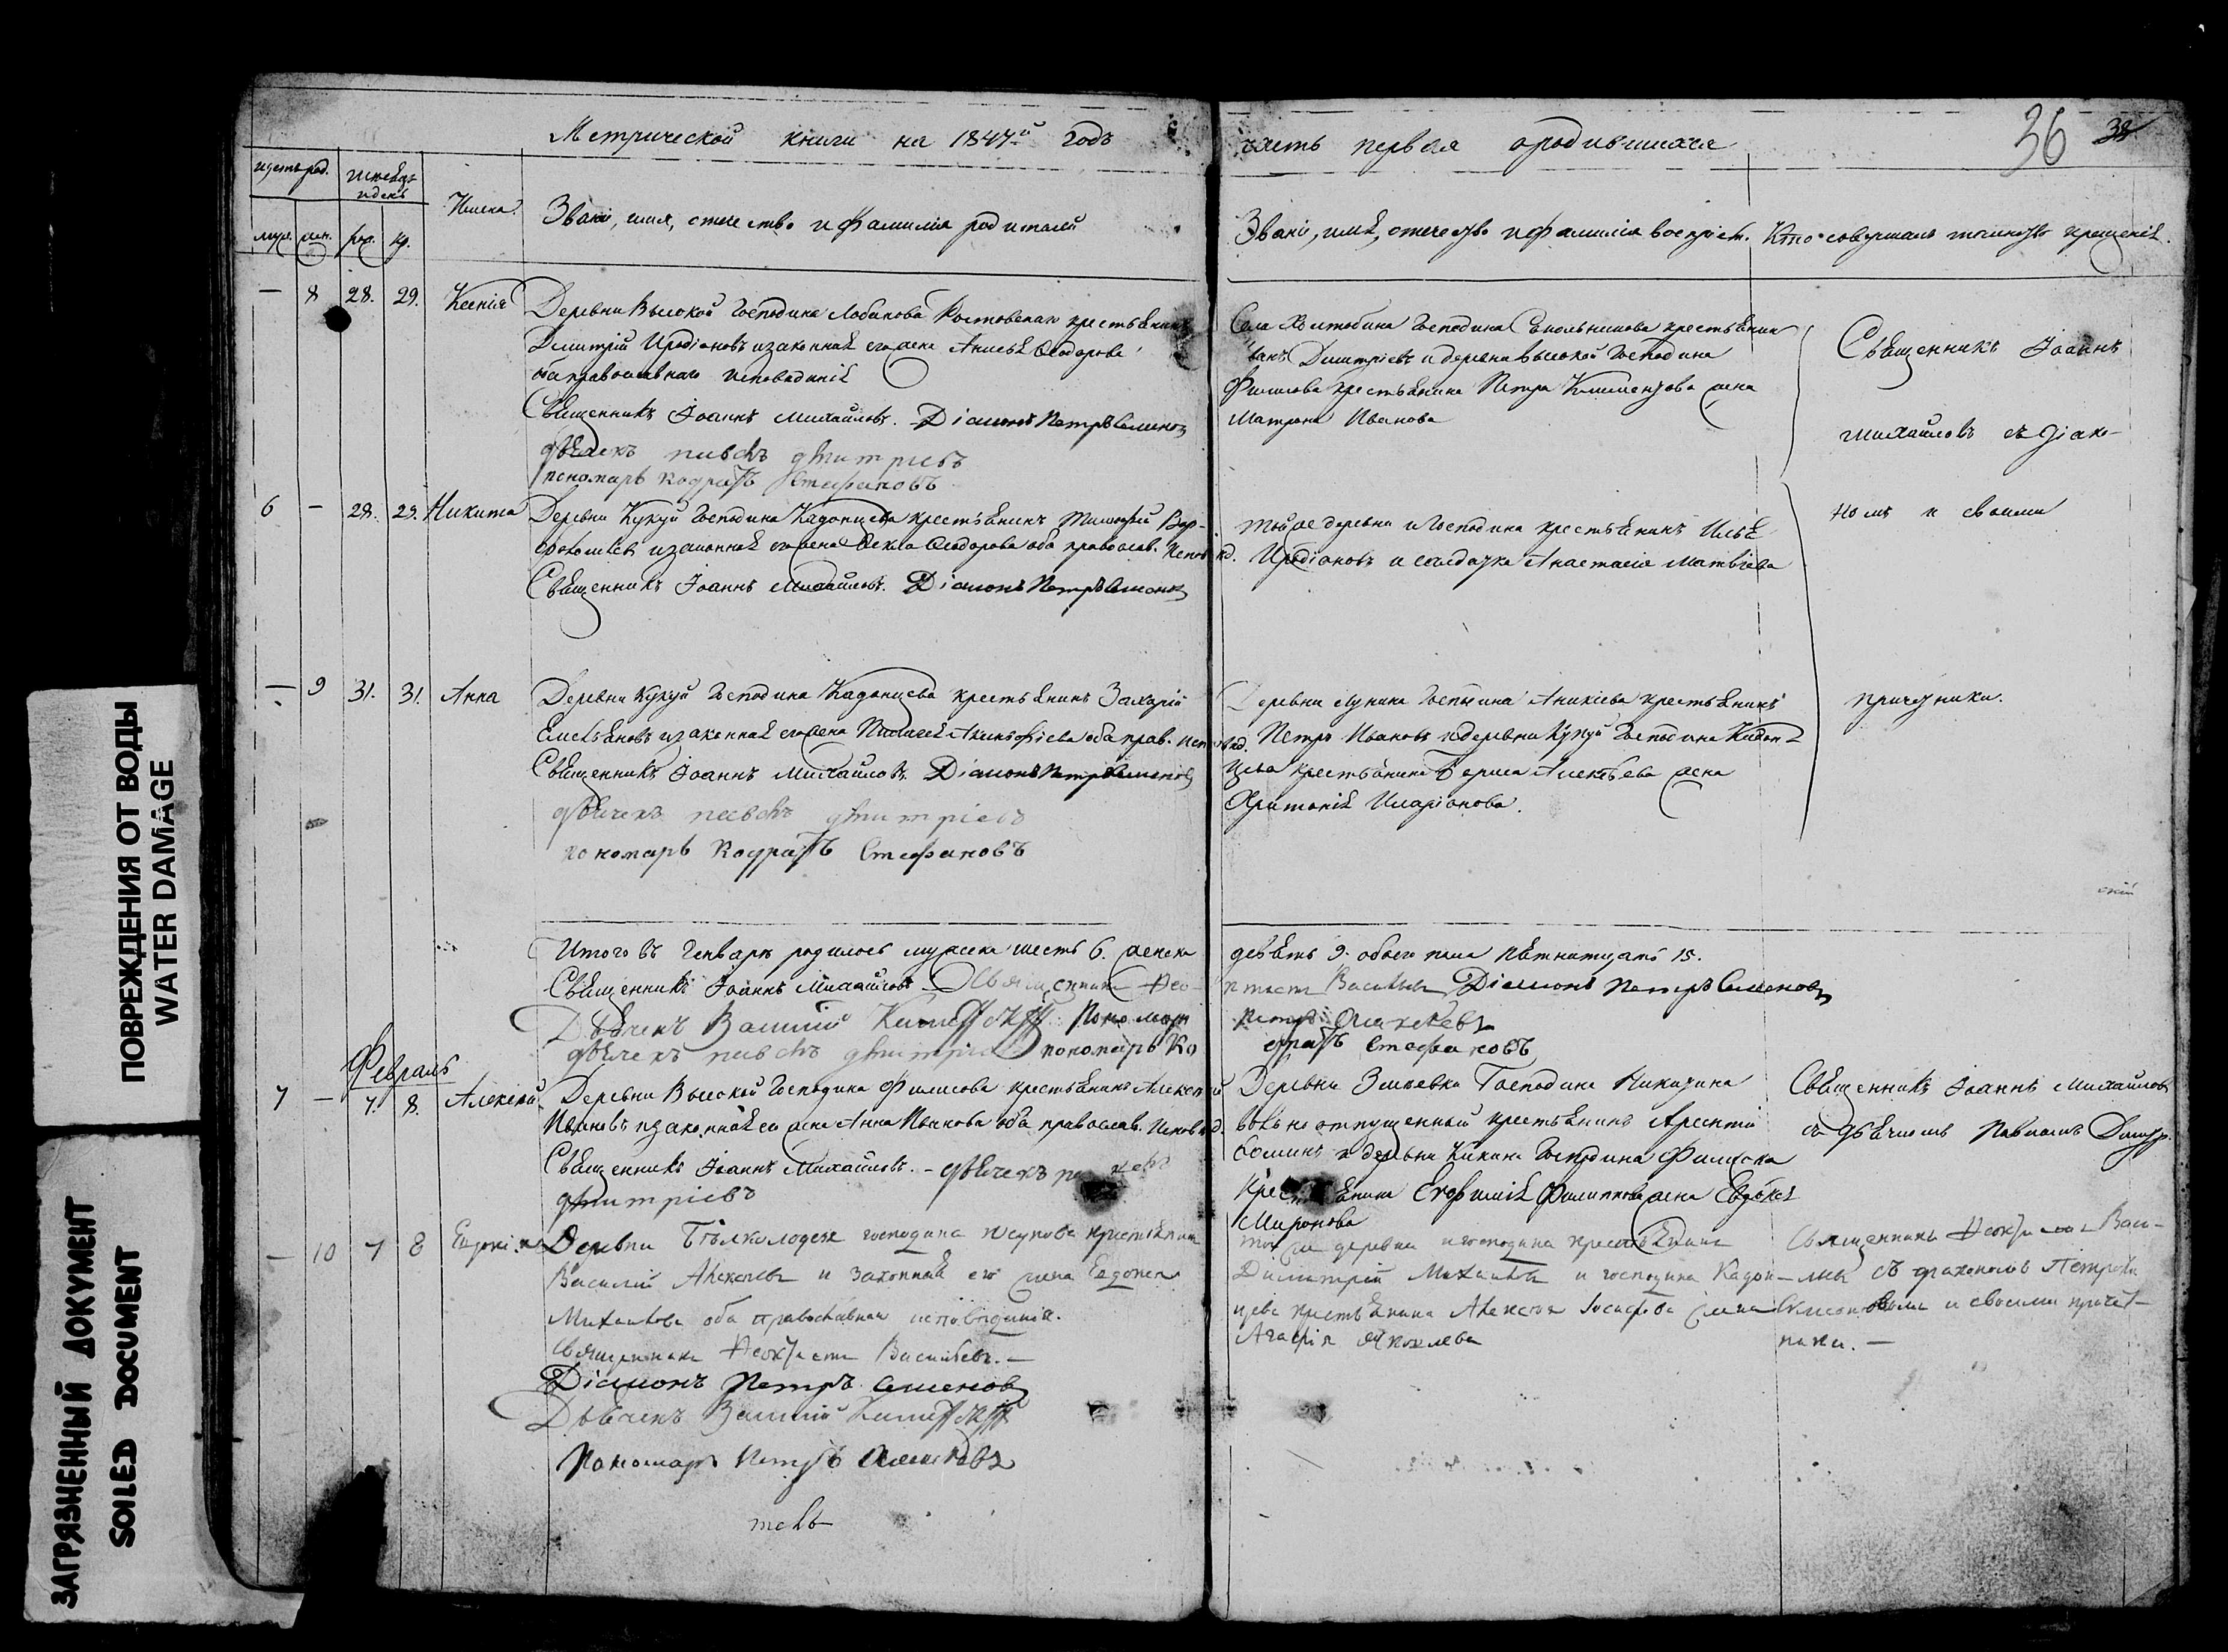 Метрической книги на 1847й годъ
часть первая ородившихся
36 38
Имена.
Званіе, имя, отечество и фамилія родителей
Званіе, имя, отечество и фамилія воспріем.
Кто совершалъ таинство крещенія.
муж. жен. рож. кр.
— 8 28. 29. Ксенія
Деревни Высокой Господина Лобанова Ростовскаго крестьянинъ
Димитрій Иродіоновъ изаконная его жена Анисья Ѳеодорова
оба православнаго исповеданія
Священникъ Іоаннъ Михайловъ. Діаконъ Петръ Семеновъ
дьячекъ павелъ дмитріевъ
пономарь кодратъ Стефановъ
Села Господина крестьянин
Иванъ Димитріевъ и деревни Высокой Господина
Филисова крестьянина Петра Климентова жена
Матрона Иванова
Священникъ Іоаннъ
Михайловъ съ Діако-
номъ и своими
причетники.
6 — 28. 29. Никита
Деревни Кукуй Господина Кадонцева крестьянинъ Тимофей Вар-
фоломеевъ изаконная его жена Ѳекла Ѳеодорова оба православ. исповѣд.
Священникъ Іоаннъ Михайловъ. Діаконъ Петръ Семеновъ
Той же деревни и Господина крестьянинъ Илья
Иродіоновъ и солдатка Анастасія Матвѣева
— 9 31. 31. Анна
Деревни Кукуй Господина Кадонцева крестьянинъ Захарій
Емельяновъ изаконная его жена Пелагея Акинфіева оба прав. исповѣд.
Священникъ Іоаннъ Михайловъ. Діаконъ Петръ Семеновъ
дьячекъ павелъ дмитріевъ
пономарь Кодратъ Стефановъ
Деревни Лунина Господина Аникіева крестьянинъ
Петръ Ивановъ и деревни Кукуй Господина Кадон-
цева крестьянина Бориса Алексѣева жена
Харитонія Иларіонова.
Итого въ Генварѣ родилось мужеска шесть 6. женска
девять 9. обоего пола пятнатцать 15.
Священникъ Іоаннъ Михайловъ Священникъ Ѳео-
ктистъ Васильевъ Діаконъ Петръ Семеновъ
Дьячекъ Василій Пономарь
Петръ Алексѣевъ
дьячекъ павелъ дмитріевъ пономарь Ко
дратъ Стефановъ
Февраль
7 — 7. 8. Алексѣй
Деревни Высокой Господина Филисова крестьянинъ Алексѣй
Ивановъ изаконная его жена Анна Иванова оба православ. исповѣд.
Священникъ Іоаннъ Михайловъ. - дьячекъ павелъ
дмитріевъ
Деревни Змѣевки Господина Никитина
вольно отпущенный крестьянинъ Арсентій
Фоминъ и деревни Кикина Господина Филисова
крестьянина Евфимія Филипова жена Евдокея
Миронова
Священникъ Іоаннъ Михайловъ
съ дьячкомъ Павломъ Димитр.
— 10 7 8
Деревни Бѣлколодезя господина Юсупова крестьянинъ
Василій Алексѣевъ и законная его жена Евдокея
Михайлова оба православнаго исповѣданія.
Священникъ Ѳеоктистъ Васильевъ. —
Діаконъ Петръ Семеновъ
Дьячекъ Василій
Пономарь Петръ Алексѣевъ
Той же деревни и господина крестьянинъ
Димитрій Михайловъ и господина Кадон-
цева крестьянина Алексѣя Іосифова жена
Агафія Яковлева
Священникъ Ѳеоктистъ Васи-
льевъ съ діакономъ Петромъ
Семеновымъ и своими причет-
ники. —
ПОВРЕЖДЕНИЯ ОТ ВОДЫ
WATER DAMAGE
ЗАГРЯЗНЕННЫЙ ДОКУМЕНТ
SOILED DOCUMENT